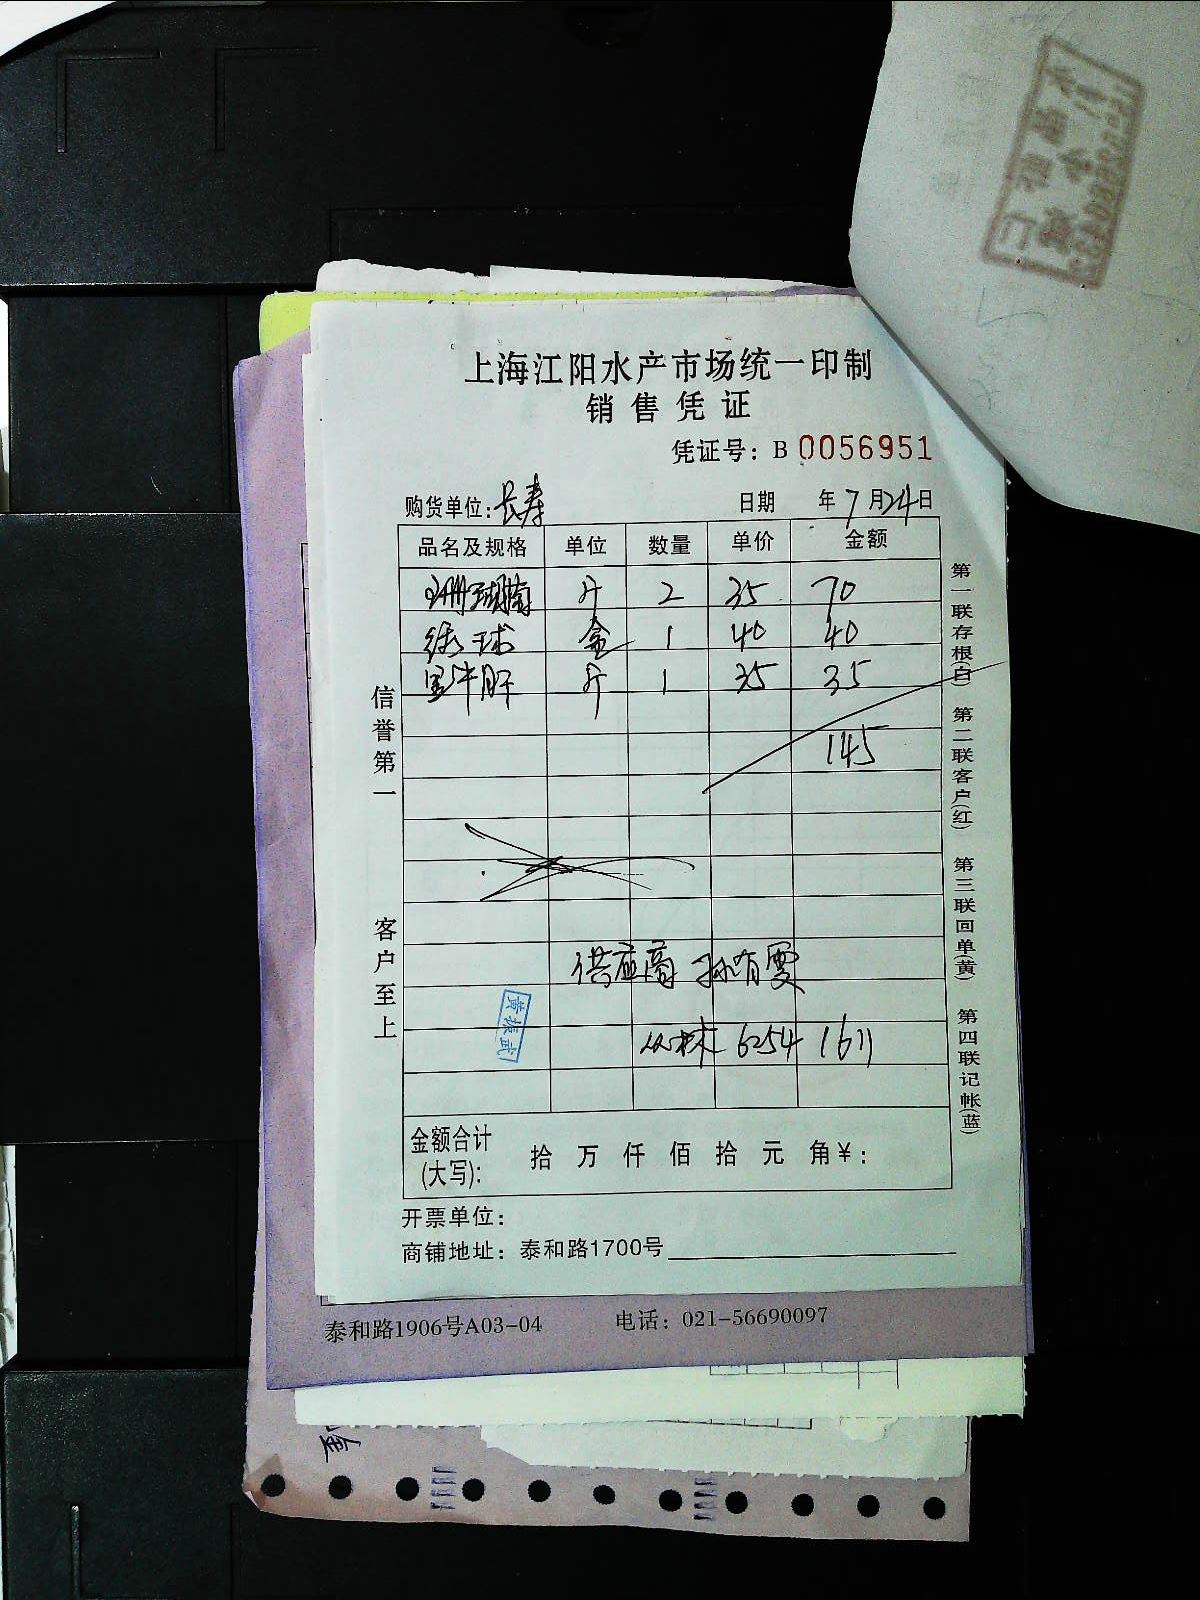 上海江阳水产市场统一印制
销售凭证
凭证号：B 0056951
购货单位：长寿 日期 年7月24日
品名及规格 单位 数量 单价 金额
珊瑚楠 斤 2 35 70
绣球 盒 1 40 40
斤 1 35 35
145
供应商 孙有雯
6254 1611
黄振武
金额合计(大写)： 拾 万 仟 佰 拾 元 角 ¥：
开票单位：
商铺地址：泰和路1700号
信誉第一 客户至上
第一联存根(白) 第二联客户(红) 第三联回单(黄) 第四联记帐(蓝)
泰和路1906号A03-04 电话：021-56690097